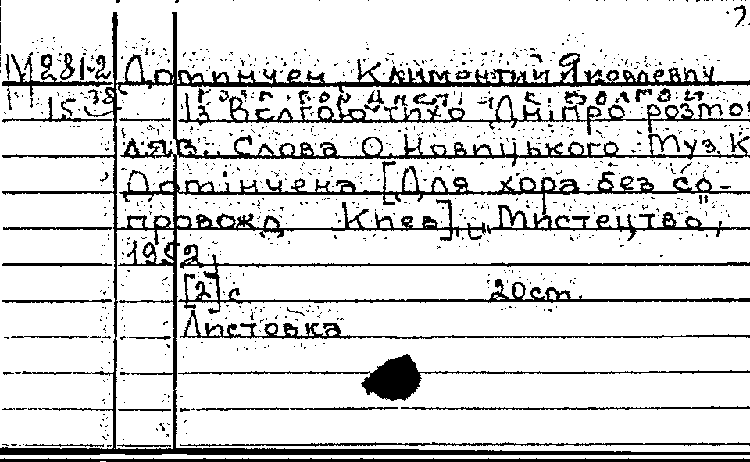 М281-2 Домінчен Климентий Яковлевич
15 38
Із Волгою тихо Дніпро розмо
ляв.. Слова О. Новицького. Муз. К
Домінчена [Для хора без со-
провожд Киев], "Мистецтво",
1952.
[2] с 20 cm.
Листовка